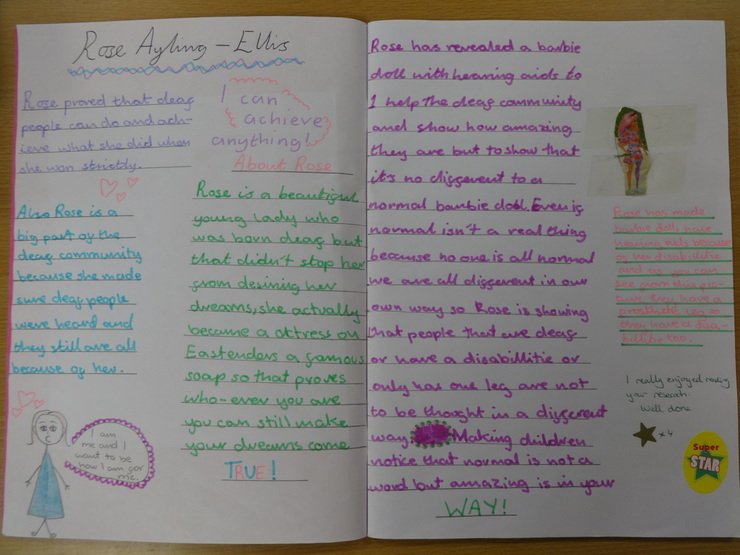 Rose Ayling - Ellis
Rose proved that deaf
people can do and ach-
ieve what she did when
she won strictly.
I can
achieve
anything!
About Rose
Also Rose is a
big part of the
deaf community
because she made
sure deaf people
were heard and
they still are all
because of her.
I am
me and I
want to be
how I am for
me.
Rose is a beautiful
young lady who
was born deaf but
that didn't stop her
from desining her
dreams, she actually
became a attress on
Eastenders a famous
soap so that proves
who-ever you are
you can still make
your dreams come
TRUE!
Rose has revealed a barbie
doll with hearing aids to
help the deaf community
and show how amazing
they are but to show that
it's no different to a
normal barbie doll. Even if
normal isn't a real thing
because no one is all normal
we are all different in our
own way so Rose is showing
that people that are deaf
or have a disabillitie or
only has one leg are not
to be thought in a different
way. Making children
notice that normal is not a
word but amazing is in your
WAY!
Rose has made
barbie dolls have
hearing aids because
of her disabilitie
and as you can
see from this pic-
ture they have a
prosthetic leg so
they have a disa-
billitie too.
I really enjoyed reading
your research.
Well done
x4
Super
STAR